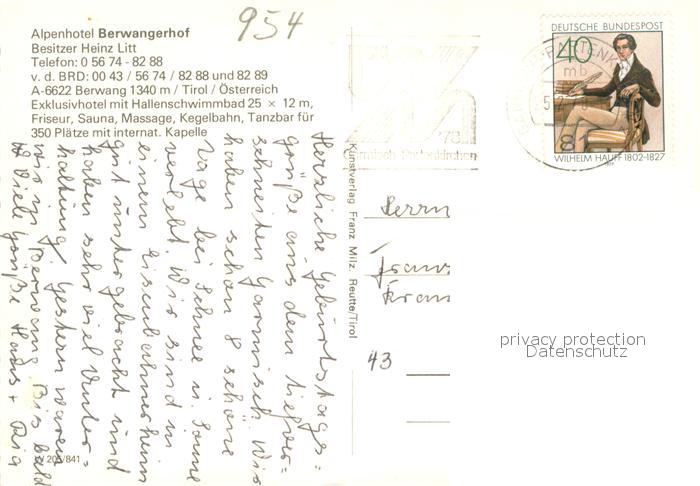 954
Alpenhotel Berwangerhof
Besitzer Heinz Litt
Telefon: 0 56 74 - 82 88
v. d. BRD: 00 43 / 56 74 / 82 88 und 82 89
A-6622 Berwang 1340 m / Tirol / Österreich
Exklusivhotel mit Hallenschwimmbad 25 × 12 m,
Friseur, Sauna, Massage, Kegelbahn, Tanzbar für
350 Plätze mit internat. Kapelle
Herzliche Geburtstags=
grüße aus dem tiefver=
schneiten Garmisch. Wir
haben schon 8 schöne
Tage bei Schnee u. Sonne
verlebt. Wir sind in
einem Eisenbahnerheim
gut untergebracht und
haben sehr viel Unter=
haltung. Gestern waren
wir in Berwang. Bis bald
Viele Grüße Hans + Ria
W 205/841
Kunstverlag Franz Milz, Reutte/Tirol
DEUTSCHE BUNDESPOST
40
WILHELM HAUFF 1802-1827
mb
81
'78
Garmisch-Partenkirchen
Herrn
Franz
43
privacy protection
Datenschutz